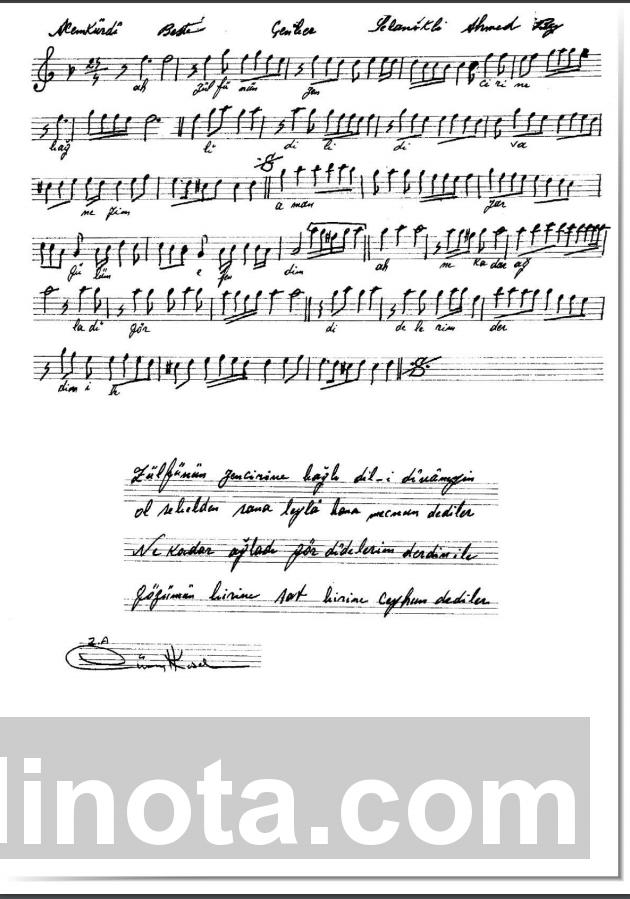 Acemkürdi Beste Çember Selanikli Ahmed Bey
ah zül fü nün zen ci ri ne
bağ lı di li di va
ne yim a man yar
gü lüm e fen dim ah ne ka dar ağ
la dı gör di de le rim der
dim i le
Zülfünün zencirine bağlı dil-i dîvâneyim
ol sebebden sana leylâ bana mecnun dediler
Ne kadar ağladı gör dîdelerim derdin ile
Gözümün birine şat birine ceyhun dediler
Z.A
dinota.com